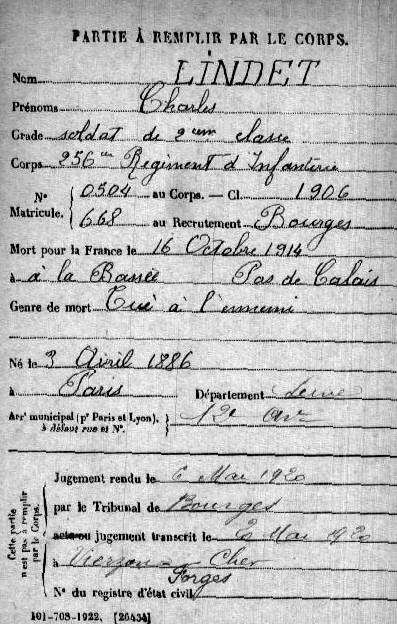 PARTIE À REMPLIR PAR LE CORPS.
Nom LINDET
Prénoms Charles
Grade soldat de 2eme classe
Corps 256eme Régiment d'Infanterie
N° Matricule. { 0504 au Corps. — Cl. 1906
668 au Recrutement Bourges
Mort pour la France le 16 Octobre 1914
à à la Bassée Pas de Calais
Genre de mort Tué à l'ennemi
Né le 3 Avril 1886
à Paris Département Seine
Arr<sup>t</sup> municipal (p<sup>r</sup> Paris et Lyon), à défaut rue et N°. } 12e arr
Cette partie n'est pas à remplir par le Corps.
Jugement rendu le 6 Mai 1920
par le Tribunal de Bourges
acte ou jugement transcrit le Mai 1920
à Vierzon - Cher
Forges
N° du registre d'état civil
101-708-1922. [26434]